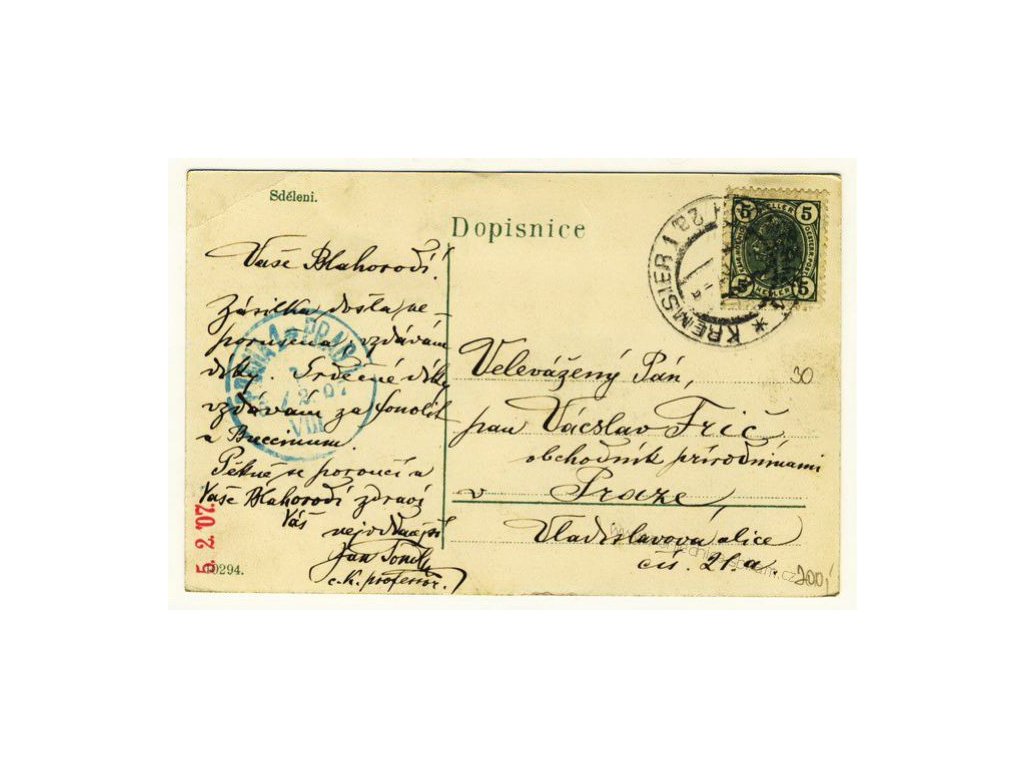 Sdělení.
Dopisnice
5 5
HELLER
5 5
HELLER
KREMSIER 1
Vaše Blahorodí!
Zásilka došla ne-
porušena vzdávám
díky. Srdečné díky
vzdávám za fonolit
a Buccinum.
Pěkně se poroučí a
Vaše Blahorodí zdraví
Váš
nejoddanější
Jan
c. k. professor.
PRAHA 1 PRAG
2. 07
VIII
5. 2. '07.
0294.
Velevážený Pán,
pan Václav Frič,
obchodník přírodninami
v Praze,
Vladislavova ulice
čís. 21.a.
30
200